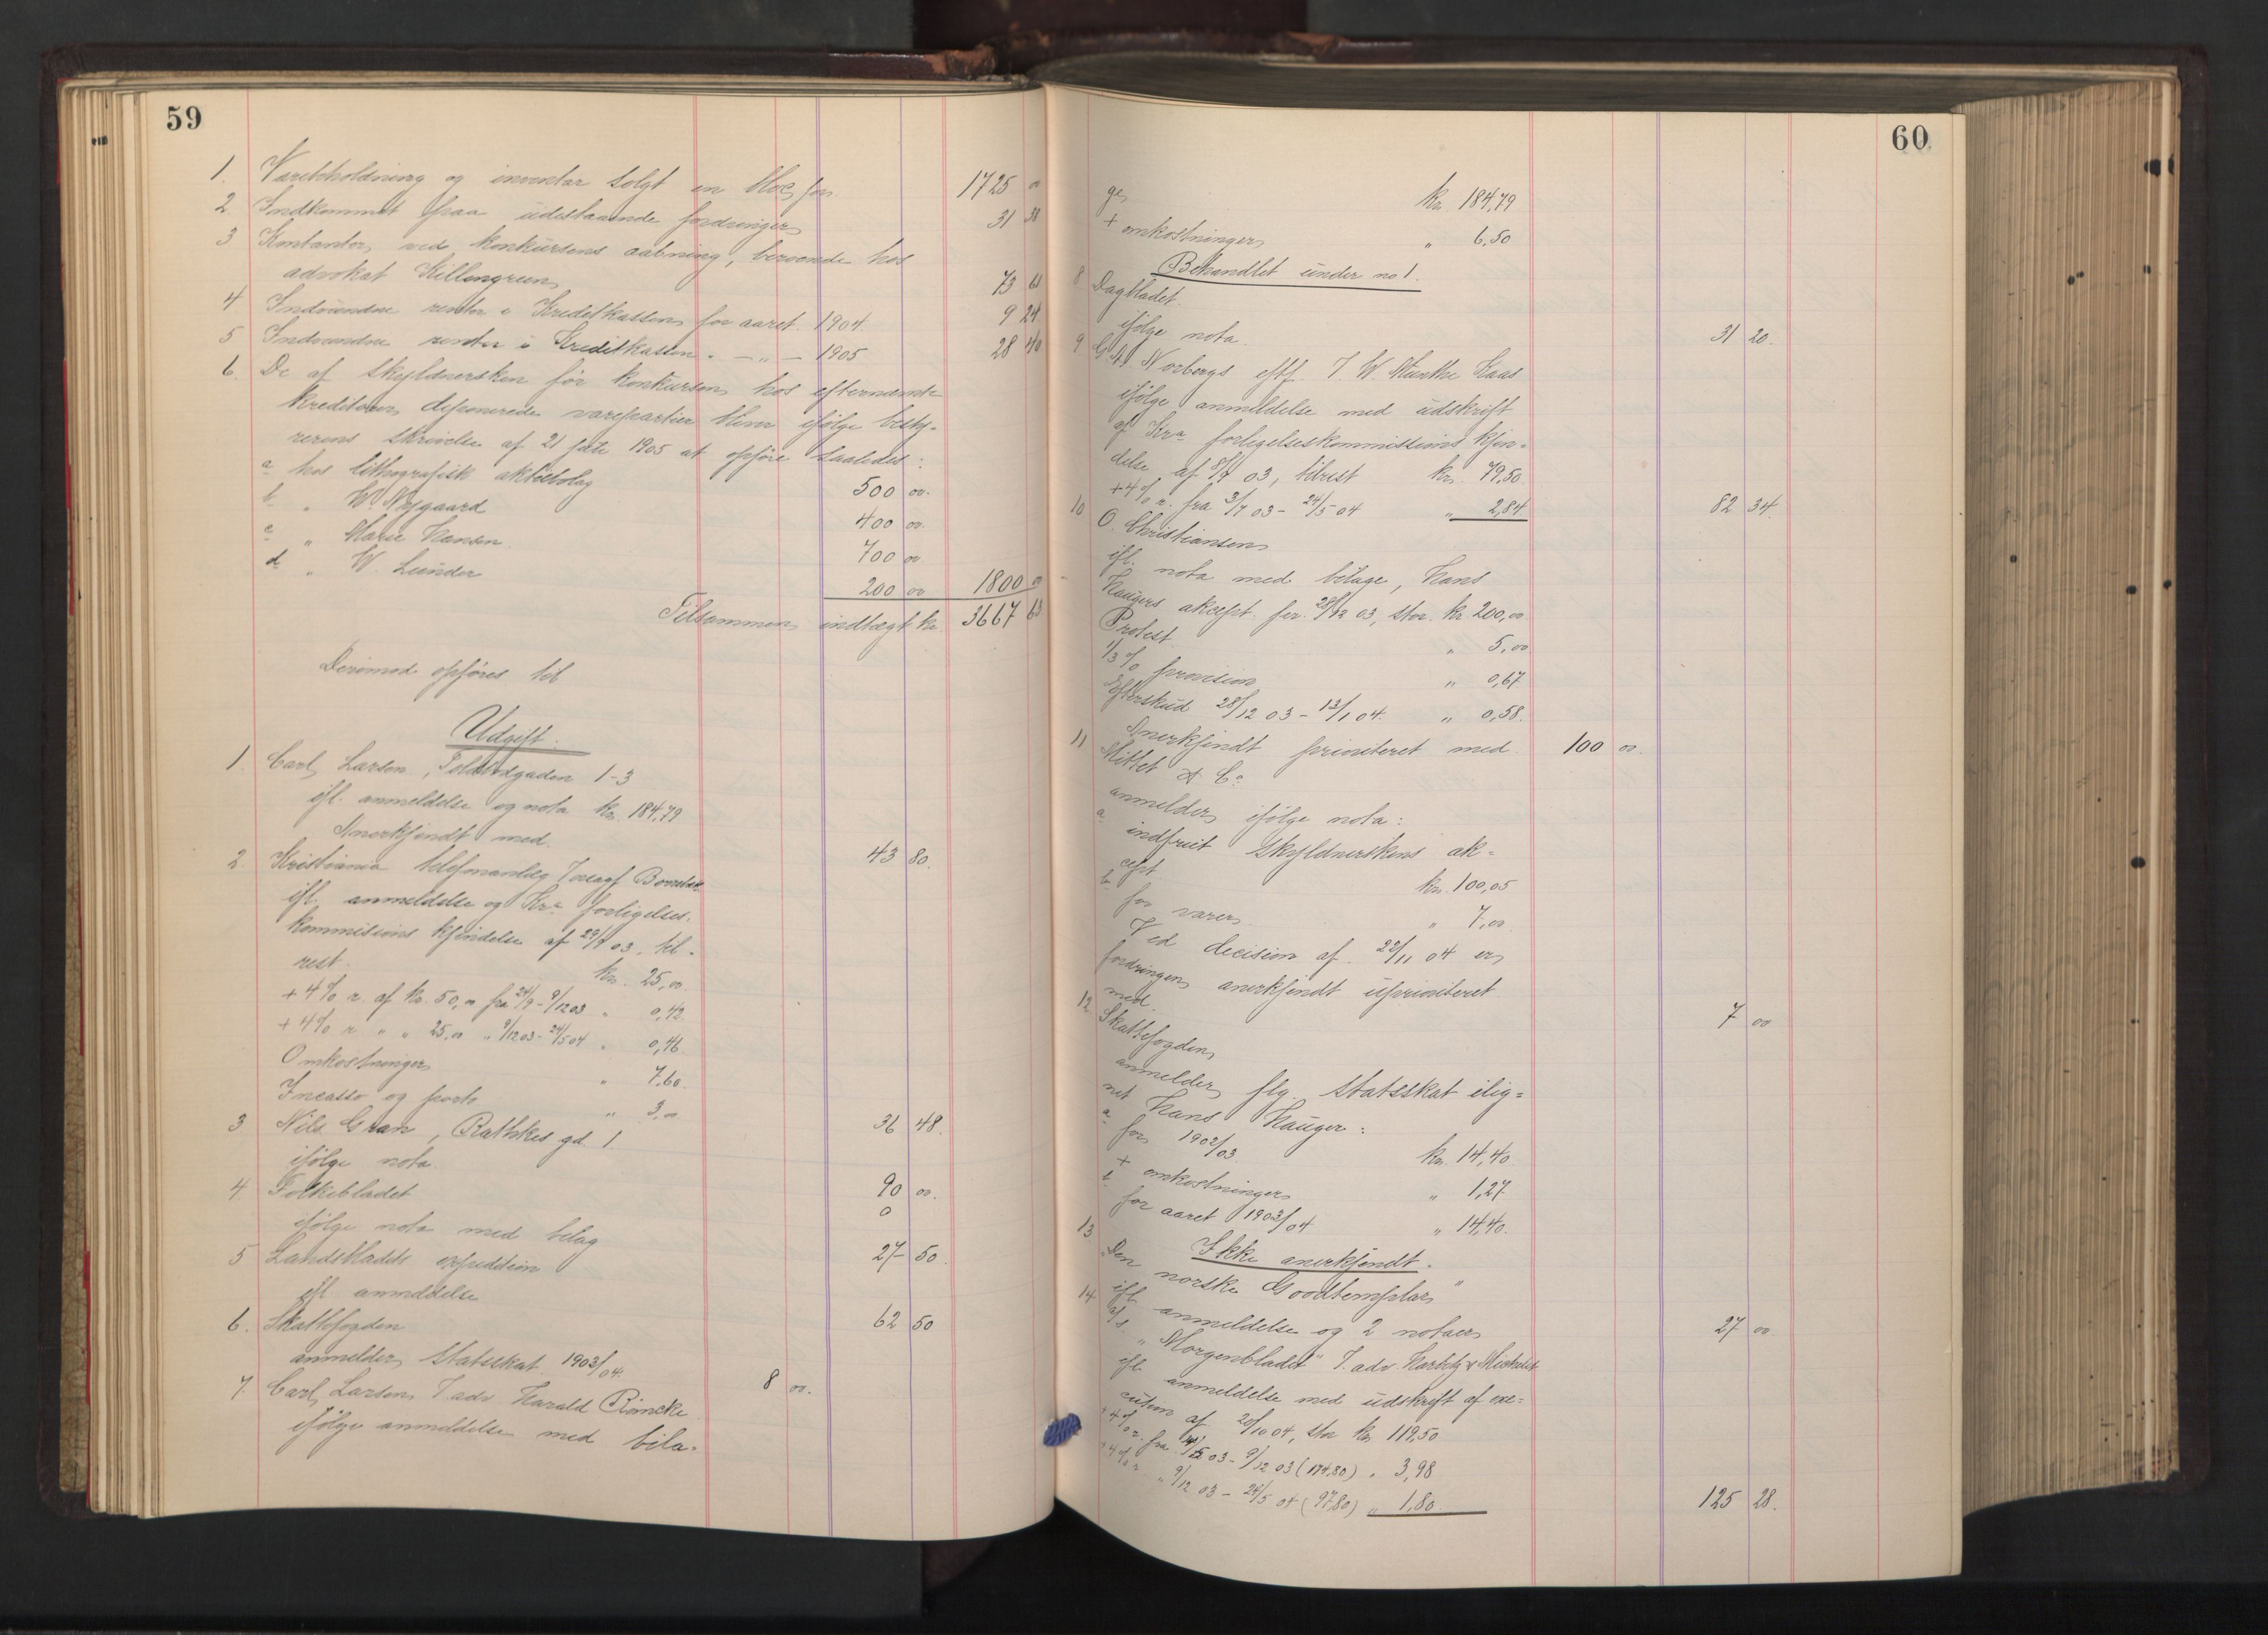 59
1. Varebeholdning og inventar solgt en bloc for 1725 00
2. Indkommet paa udestaaende fordringer 31 38
3 Kontanter ved konkursens aabning, beroende hos
advokat Killengreen 73 61
4 Indvundne renter i Kreditkassen for aaret 1904 9 24
5 Indvundne renter i Kreditkassen - „ - 1905 28 40
6. De af skyldnersken før konkursen hos efternævnte
kreditorer deponerede varepartier bliver ifølge besty-
rerens skrivelse af 21 juli 1905 at opføre saaledes:
a hos lithografisk aktiebolag 500 00.
b „ W. Nygaard 400 00.
c „ Marie Hansen 700 00
d „ W. Lunder 200 00 1800 00
Tilsammen indtægt kr. 3667 63
Derimod opføres til
Udgift.
1. Carl Larsen, Toldbodgaden 1-3
ifl. anmeldelse og nota kr. 184,79
Anerkjendt med. 43 80.
2. Kristiania telefonanlæg
ifl. anmeldelse og Kra forligelses-
kommisions kjendelse af 29/9 03, til-
rest. kr. 25,00.
+ 4% r. af kr. 50,00 fra 24/9 - 9/12 03 „ 0,42
+ 4% r. „ „ 25,00 „ 9/12 03 - 24/5 04 „ 0,46
Omkostninger „ 7,60.
Incasso og porto „ 3,00 36 48.
3 Nils Gran, Rathkes gd. 1
ifølge nota 90 00.
4. Folkebladet 0
ifølge nota med bilag 27 50
5 Landsbladets expedition
ifl. anmeldelse 62 50
6. Skattefogden
anmelder statsskat 1903/04. 8 00.
7. Carl Larsen J. adv Harald Römcke
ifølge anmeldelse med bila-
60
ger kr. 184,79
+ omkostninger „ 6,50
Behandlet under no 1.
8 Dagbladet
ifølge nota 31 20.
9 Norbergs eftf. J. W. Munthe Kaas
ifølge anmeldelse med udskrift
af Kra forligelseskommissions kjen-
delse af 8/7 03, tilrest kr. 79,50
+ 4% r. fra 3/7 03 - 24/5 04 „ 2,84 82 34.
10 O. Christiansen
ifl. nota med bilage, Hans
Haugers akcept. per. 28/12 03, stor. kr. 200,00
Protest „ 5,00
1/3 % provision „ 0,67
Efterskud 28/12 03 - 13/1 04. „ 0,58.
Anerkjendt prioriteret med 100 00.
11 Mittet & Co
anmelder ifølge nota:
a indfriet skyldnerskens ak-
cept kr. 100,05
b for varer „ 7,00.
Ved decision af 22/11 04 er
fordringen anerkjendt uprioriteret
med 7 00
12 Skattefogden
anmelder flg. statsskat ilig-
net Hans Hauger:
a for 1902/03 kr. 14,40.
+ omkostninger „ 1,27
b for aaret 1903/04 „ 14,40.
Ikke anerkjendt.
13 „Den norske Goodtemplar"
ifl. anmeldelse og 2 notaer 27 00
14 A/S. „Morgenbladet" J. adv. Harbitz & Michelet
ifl. anmeldelse med udskrift af exe-
cution af 20/10 04, stor kr. 119,50
+ 4% r. fra 03 - 9/12 03 (174,80) „ 3,98
+ 4% r. „ 9/12 03 - 24/5 04 (97,80) „ 1,80. 125 28.